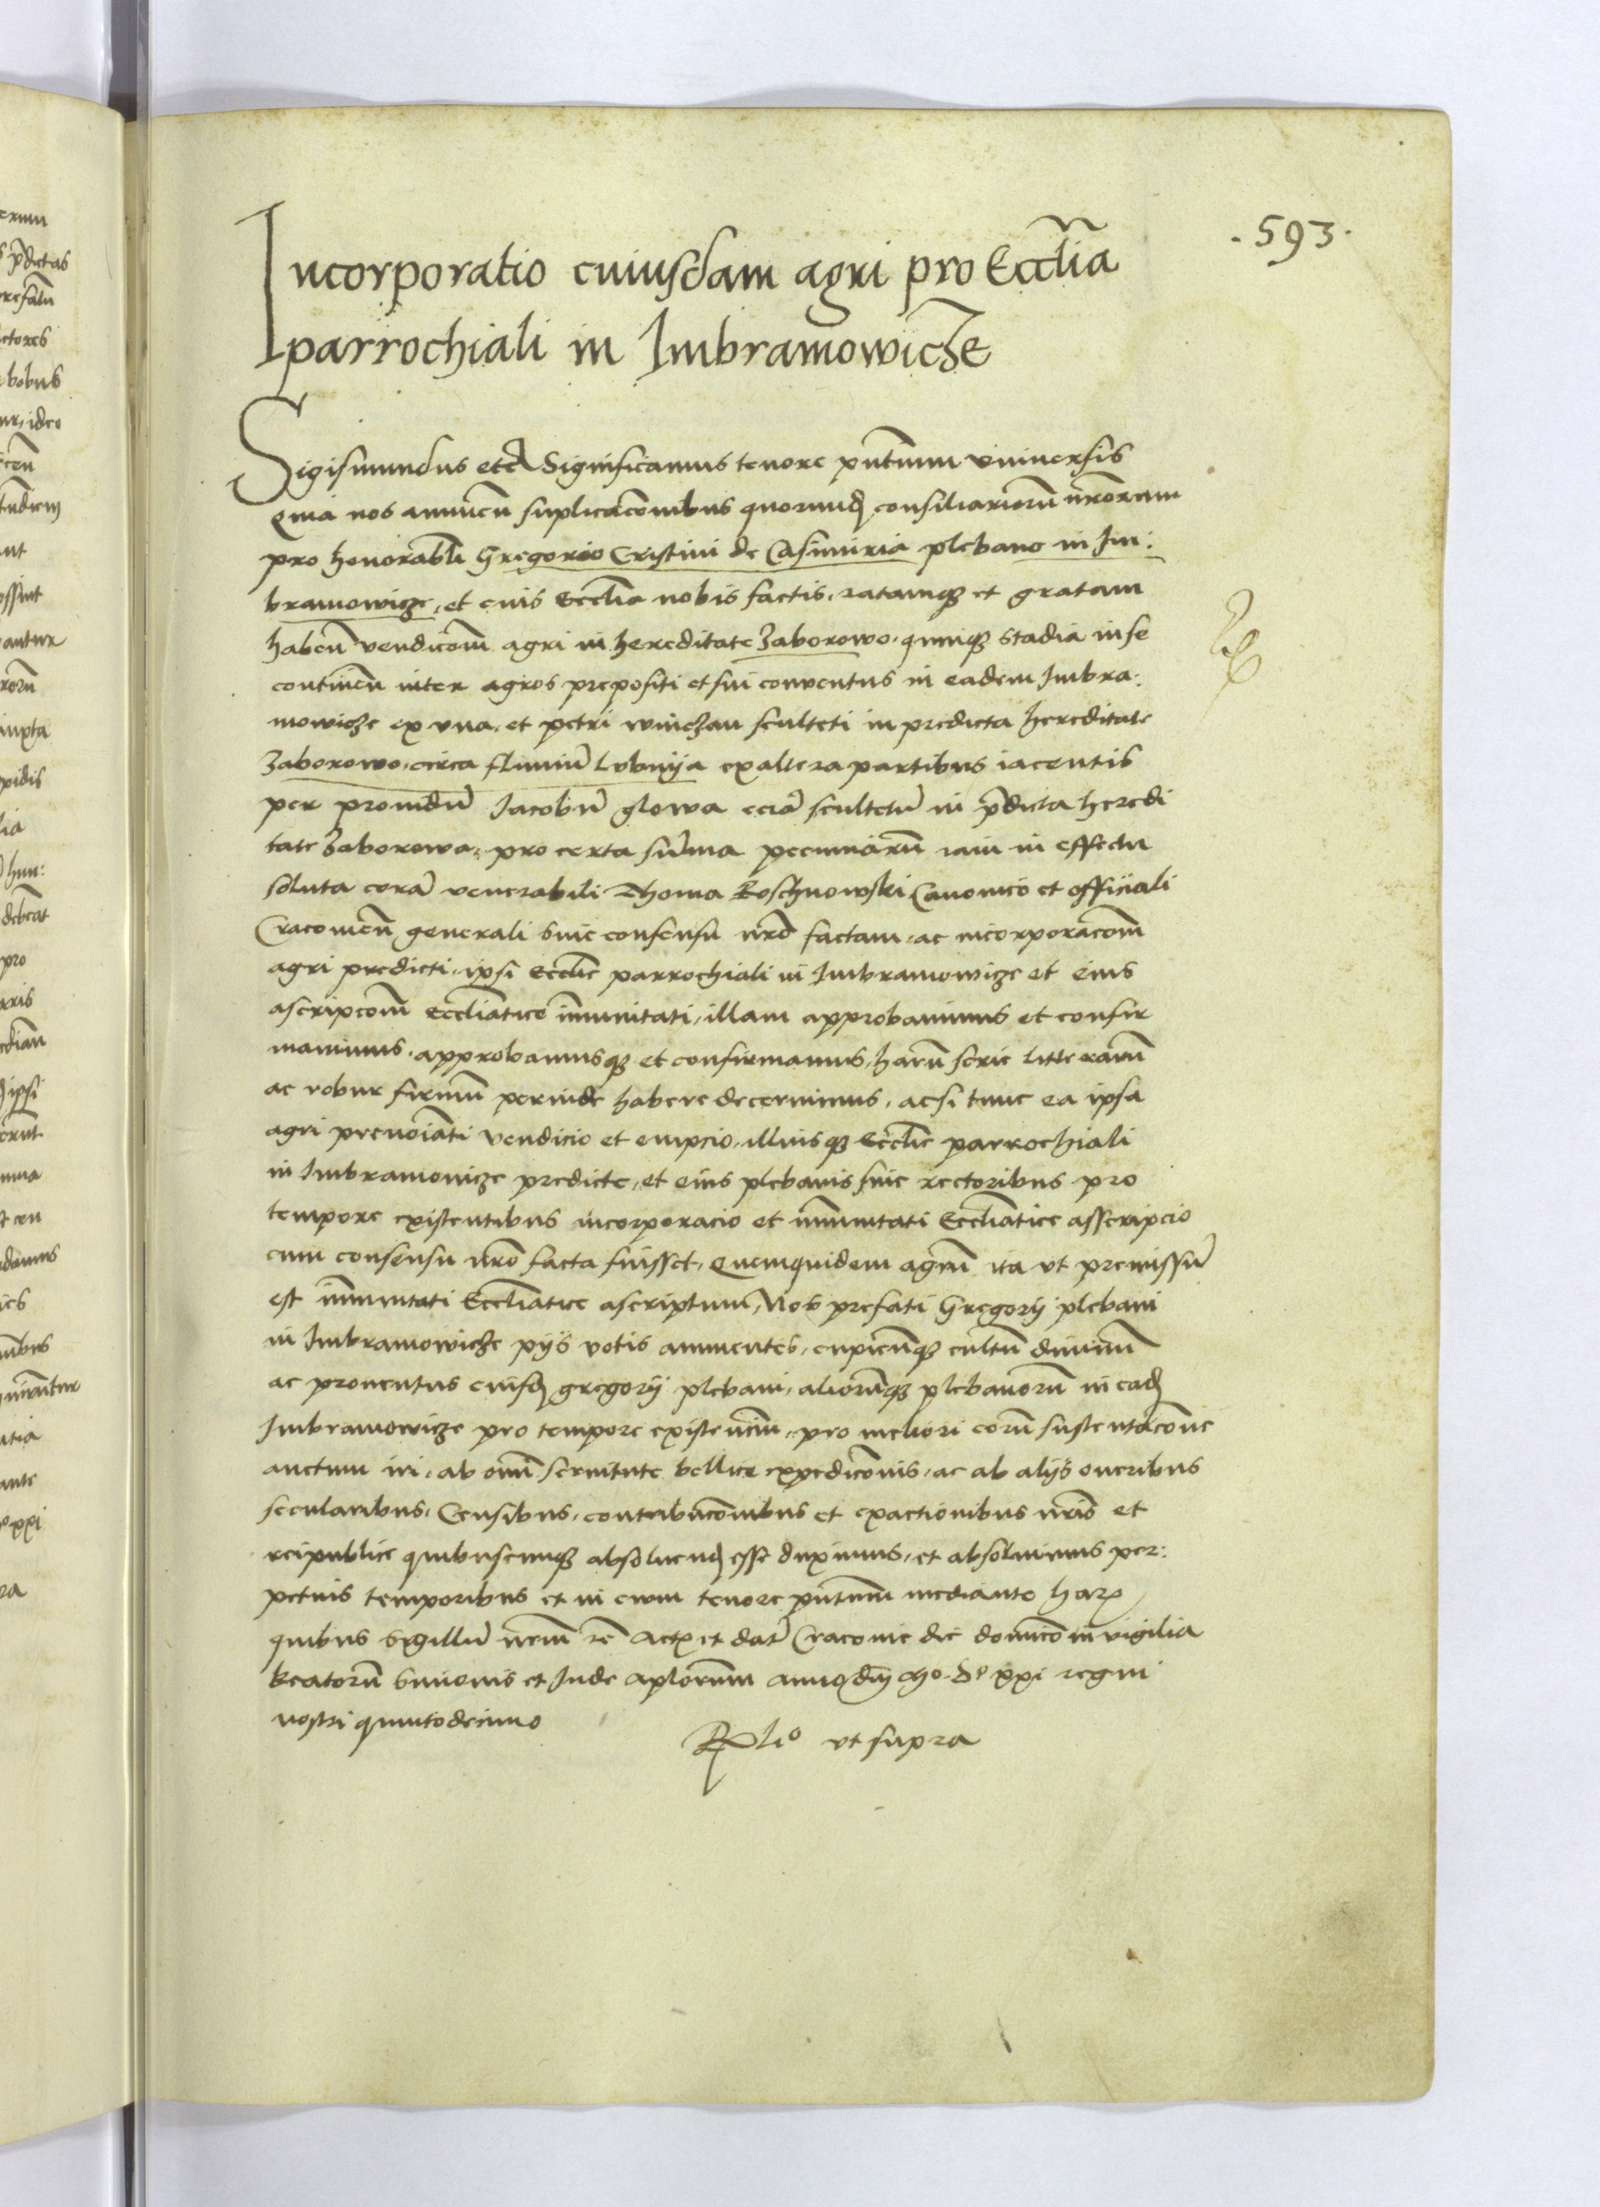 .593.
Incorporatio cuiusdam agri pro Eccl̃ia
parrochiali in Imbramowicze
Sigismundus etc̃ Significamus tenore pñtium vniuersis
Quia nos annueñ suplicac̃onibus quorund̃ consiliarioru̅ nr̃orum
pro honorabĩli Gregorio Cristini de Casimiria plebano in Im:
bramowicze, et eius Eccl̃ia nobis factis, ratamq̃ et gratam
habeñ vendic̃om̃ agri in hereditate Zaborowo, quinq̃ stadia in se
contineñ inter agros prepositi et sui conuentus in eadem Imbra:
mowicze ex vna, et petri winczan sculteti in predicta hereditate
Zaborowo, circa fluuiu̅ Lubnija ex altera partibus iacentis
per prouidu̅ Jacobu̅ glowa ecia̅ scultetu̅ in p̃dicta heredi
tate Zaborowa, pro certa su̅ma pecuniaru̅ iam in effectu
soluta cora̅ venerabili Thoma Roschnowski Canonico et officiali
Cracouieñ generali siue consensu nr̃o factam, ac incorporac̃om̃
agri predicti, ipsi Eccl̃ie parrochiali in Imbramowicze et eius
ascripc̃om̃ eccl̃iastice im̃unitati, illam approbauimus et confir
mauimus, approbamusq̃ et confirmamus, haru̅ serie litteraru̅
ac robur firmu̅ perinde habere decernimus, ac si tunc ea ipsa
agri prenoĩati vendicio et empcio, illiusq̃ Eccl̃ie parrochiali
in Imbramowicze predicte, et eius plebanis siue rectoribus pro
tempore existentibus incorporacio et im̃unitati Eccl̃iastice asscripcio
cum consensu nr̃o facta fuisset, Quemquidem agru̅ ita vt premissu̅
est im̃unitati Eccl̃iastice ascriptum, Nos prefati Gregorij plebani
in Imbramowicze pijs votis annuentes, cupieñq̃ cultu̅ diuinu̅
ac prouentus eiusd̃ gregorij plebani, alioru̅q̃ plebanoru̅ in ead̃
Imbramowicze pro tempore existenciu̅, pro meliori eoru̅ sustentac̃one
auctum iri, ab om̃i seruitute bellice expedic̃onis, ac ab alijs oneribus
secularibus, Censibus, contribuc̃onibus et exactionibus nr̃is et
reipublice quibuscunq̃ absoluend̃ esse duximus, et absoluimus per:
petuis temporibus et in ewm tenore pñtium mediante har̃
quibus sigillu̅ nr̃um etc̃ Act̃ et dat̃ Cracouie die dominico in vigilia
beatoru̅ Simonis et Jude aplõrum anno dñi Mo. Do xxi regni
nostri quintodecimo
Rel̃io vt supra